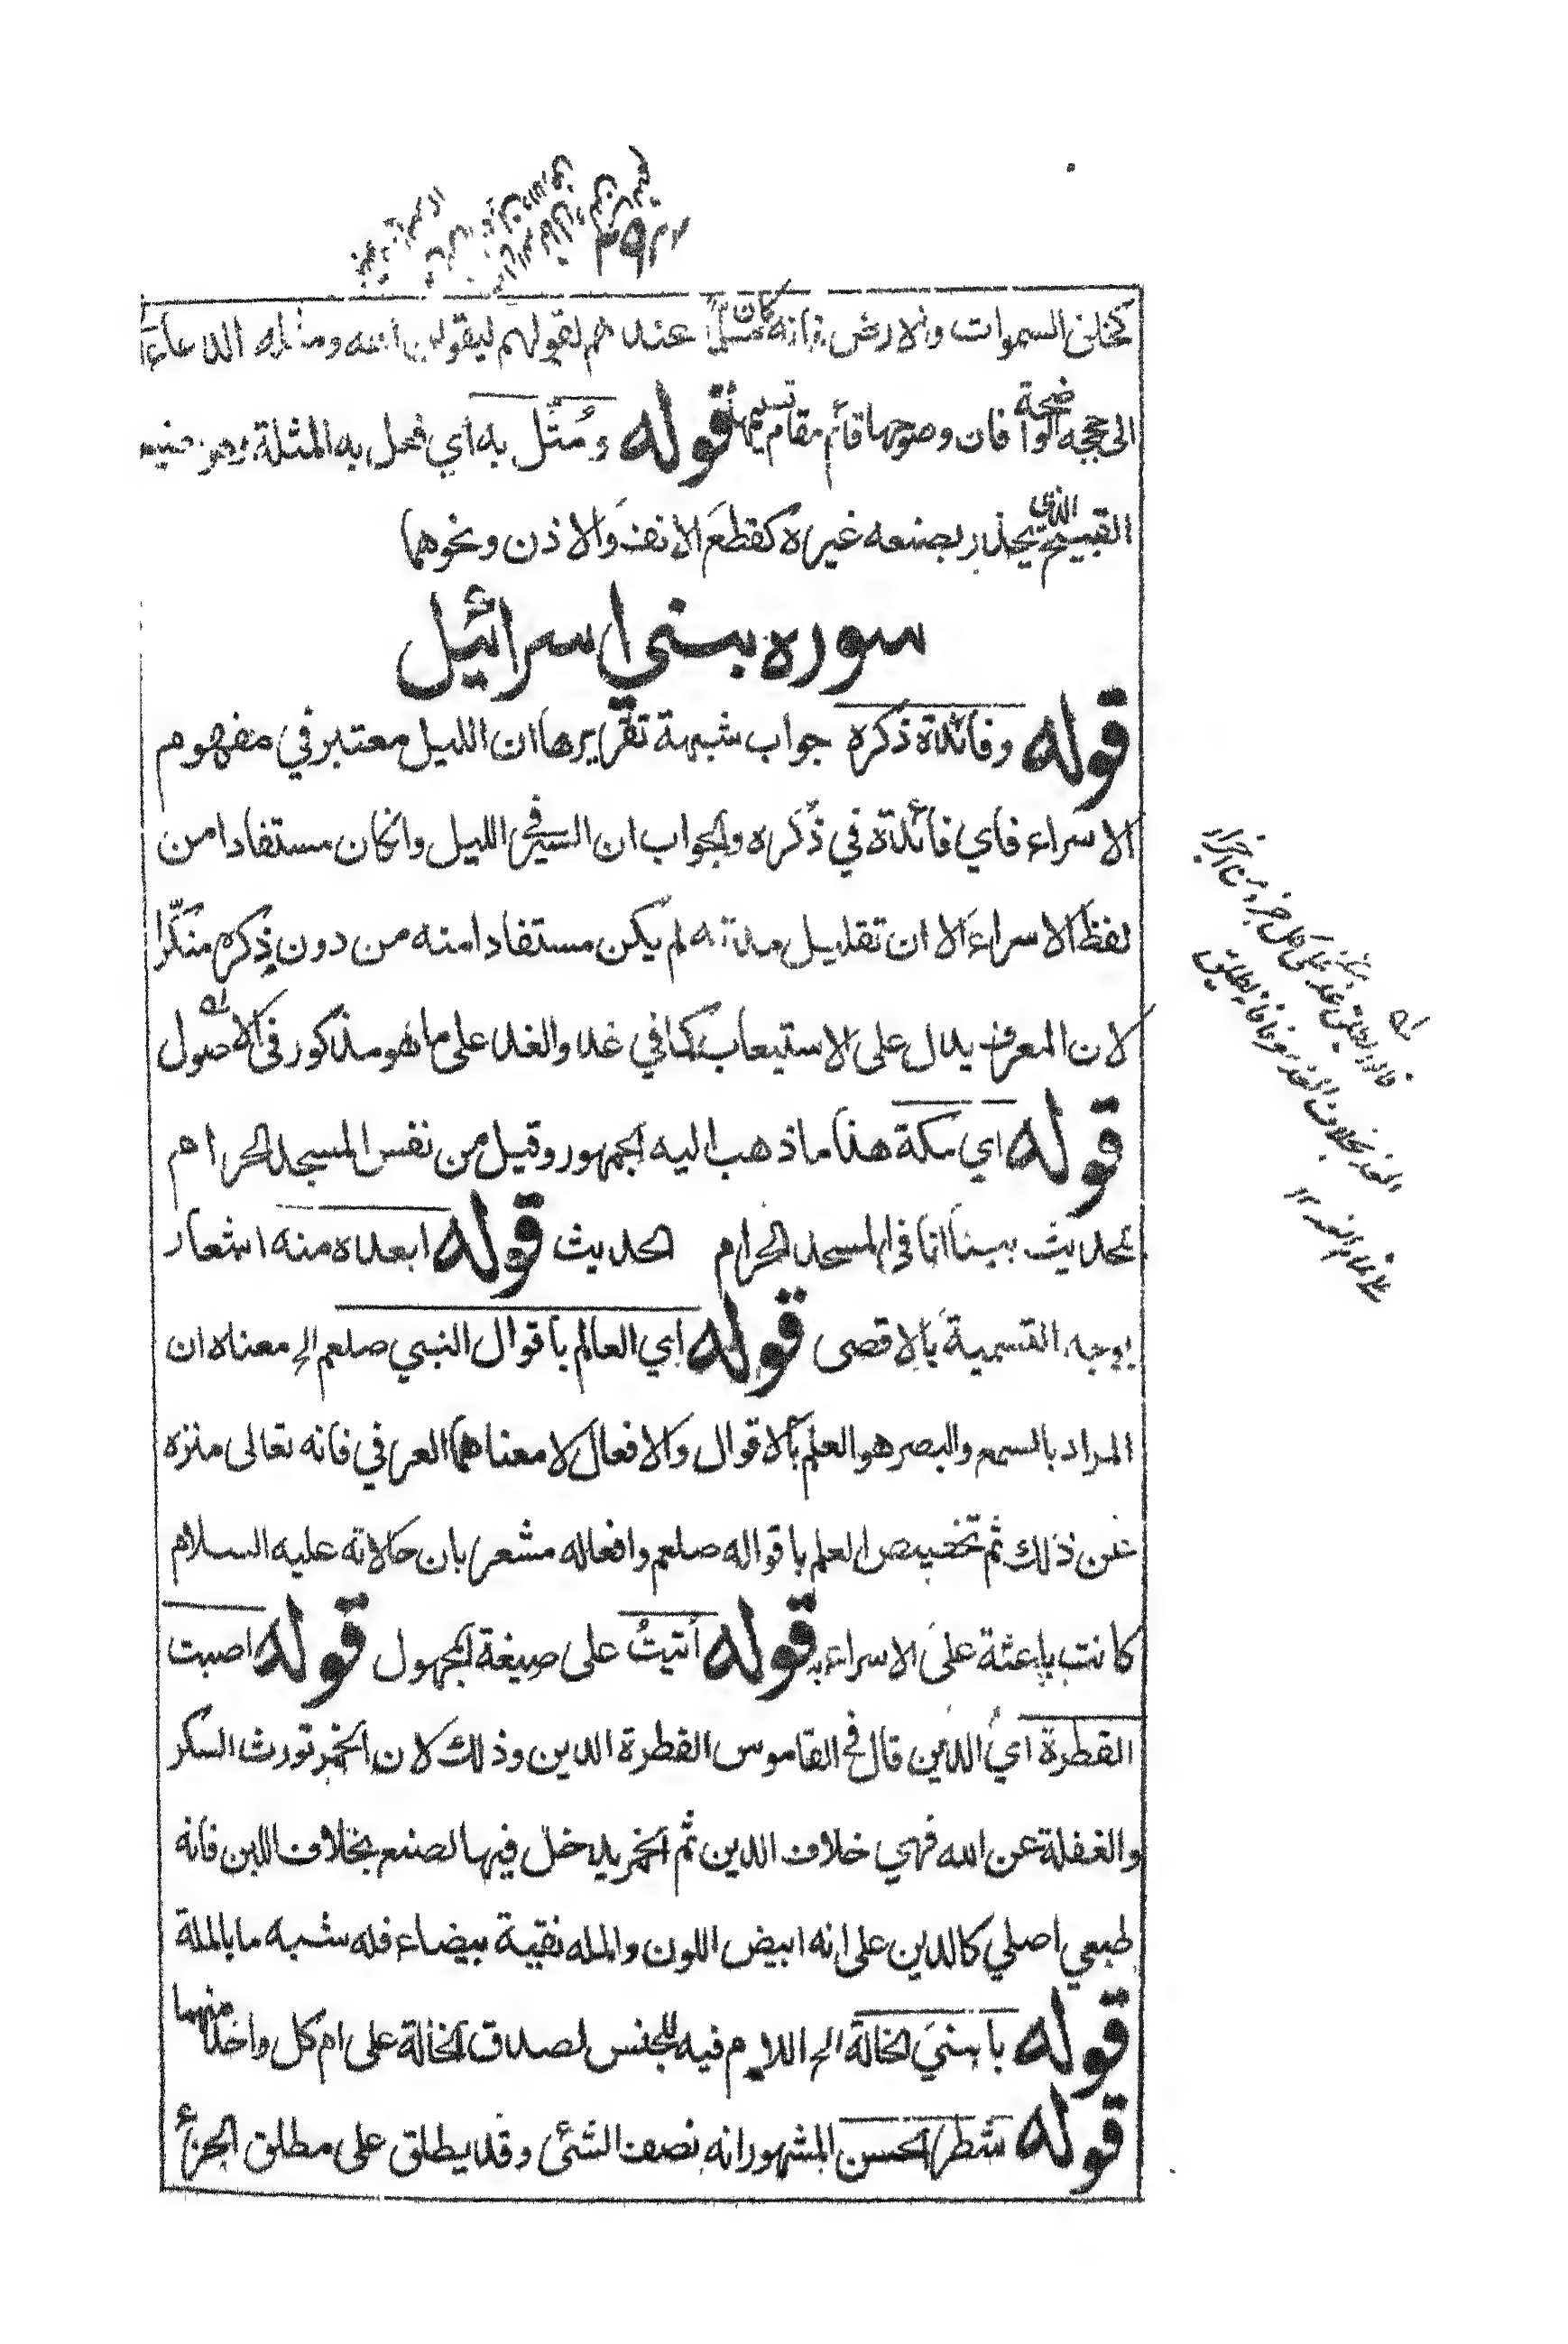 كخلق السموات والارض فانه كان مسلّما عندهم لقولهم ليقولن الله ومثله الدعاء
الى حججه الواضحة فان وضوحها قائم مقام تسليمها قوله ومُثِّل به اي فعل به المثلة وهو صنيع
القبيح الذي يحذر بصنعه غيره كقطع الانف والاذن ونحوهما
سوره بني اسرائيل
قوله وفائدة ذكره جواب شبهة تقريرها ان الليل معتبر في مفهوم
الاسراء فاي فائدة في ذكره والجواب ان السير في الليل وانكان مستفادا من
لفظ الاسراء الا ان تقليل مدته لم يكن مستفادا منه من دون ذكره منكّرا
لان المعرف يدل على الاستيعاب كما في غد والغد على ما هو مذكور في الاصول
قوله اي مكة هذا ما ذهب اليه الجمهور وقيل من نفس المسجد الحرام
لحديث بينا انا في المسجد الحرام الحديث قوله ابعده منه اشعار
بوجه التسمية بالاقصى قوله اي العالم باقوال النبي صلعم الخ معناه ان
المراد بالسمع والبصر هو العلم بالاقوال والافعال لا معناهما العرفي فانه تعالى منزه
عن ذلك ثم تخصيص العلم باقواله صلعم وافعاله مشعر بان حالاته عليه السلام
كانت باعثة على الاسراء به قوله أُتيتُ على صيغة المجهول قوله اصبت
القطرة اي الدين قال في القاموس الفطرة الدين وذلك لان الخمر تورث السكر
والغفلة عن الله فهي خلاف الدين ثم الخمر يدخل فيها لصنع بخلاف اللبن فانه
طبعي اصلي كالدين على انه ابيض اللون والمله نقية بيضاء فله شبه ما بالملة
قوله بابني الخالة الخ اللام فيه للجنس لصدق الخالة على ام كل واحد منهما
قوله شطر الحسن المشهور انه نصف الشئ وقد يطلق على مطلق الجزئ